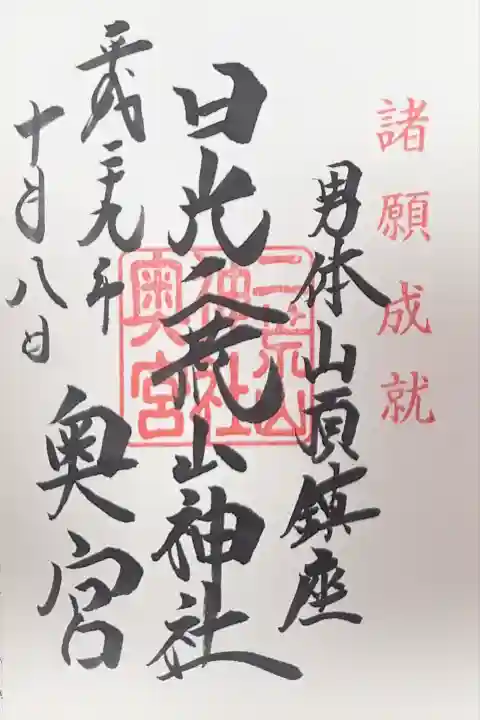 諸願成就
男体山頂鎮座
日光二荒山神社
奥宮
平成二十九年
十月八日
二荒山
神社
奥宮